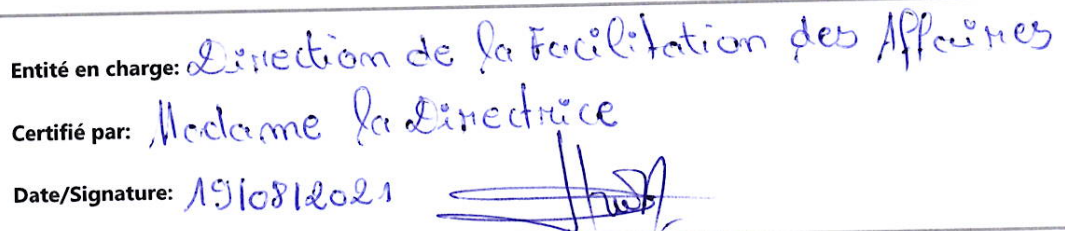 Entité en charge: Direction de la Facilitation des Affaires
Certifié par: Madame la Directrice
Date/Signature: 19/08/2021